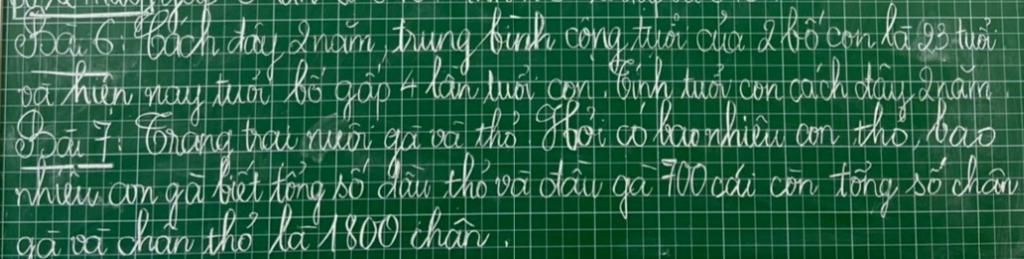 Bài 6: Cách đây 2 năm, trung bình cộng tuổi của 2 bố con là 23 tuổi
và hiện nay tuổi bố gấp 4 lần tuổi con. Tính tuổi con cách đây 2 năm.
Bài 7: Trang trại nuôi gà và thỏ. Hỏi có bao nhiêu con thỏ, bao
nhiêu con gà biết tổng số đầu thỏ và đầu gà 700 cái còn tổng số chân
gà và chân thỏ là 1800 chân.